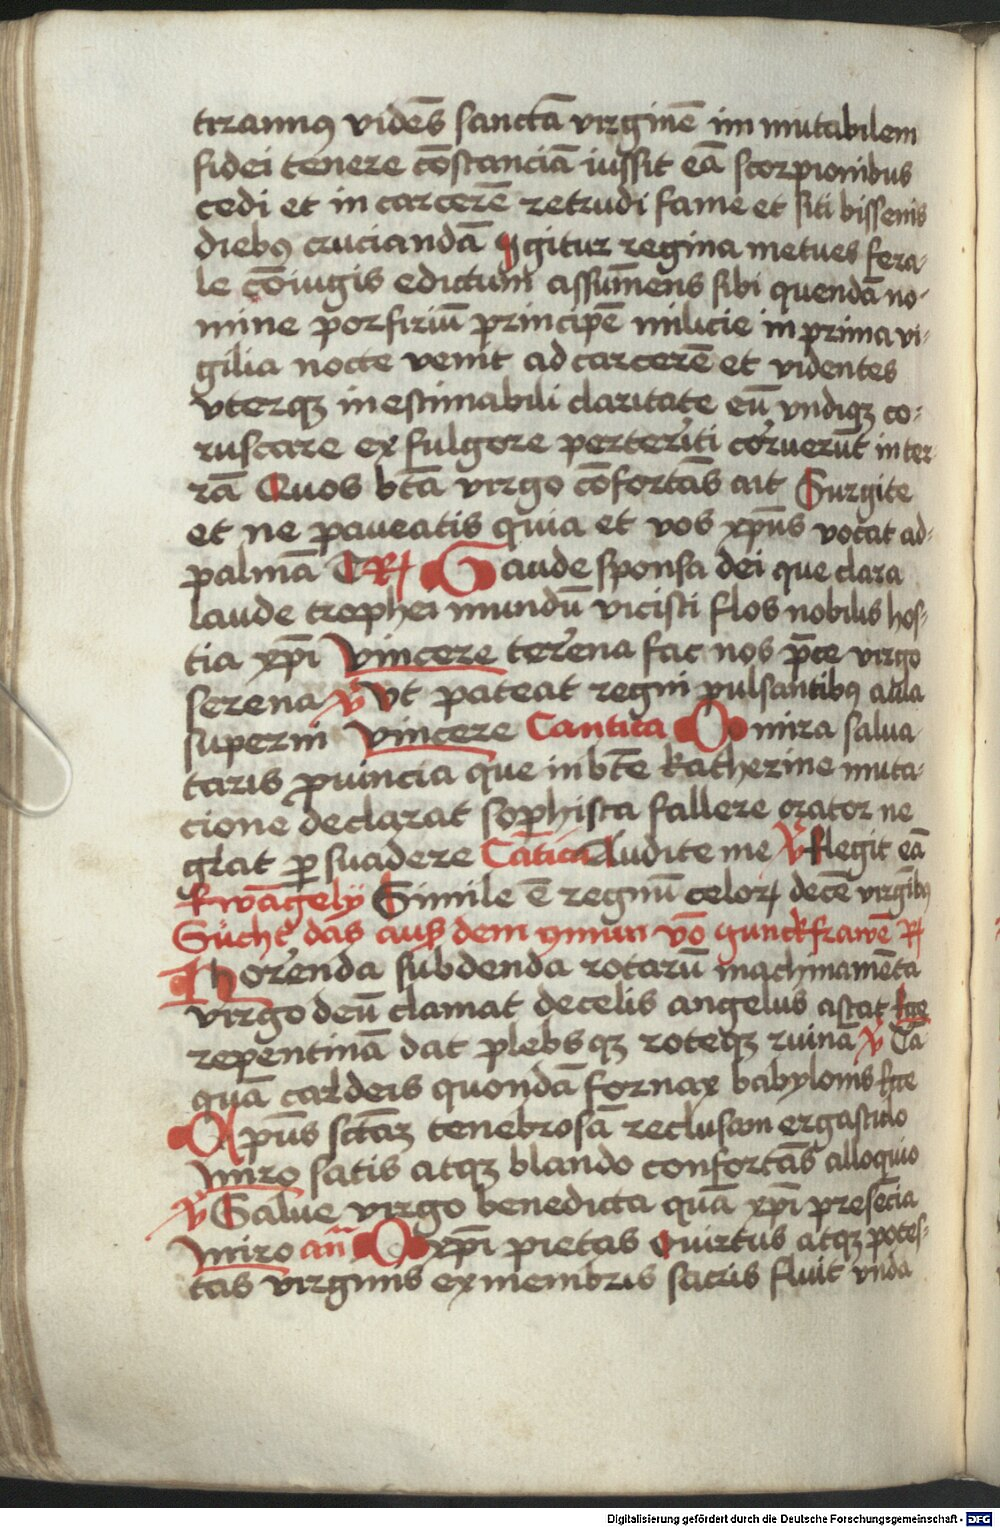 tirannꝯ vidēs sanctā virginē im mutabilem
fidei tenere cōstanciā iussit eā scorpionibus
cedi et in carcerē retrudi fame et siti bissenis
diebꝯ cruciandā Igitur regina metues fera-
le cōiugis edictum assūmens sibi quendā no-
mine porfiriū principē milicie in prima vi-
gilia nocte venit ad carcerē et videntes
vterqꝫ inestimabili claritate eū vndiqꝫ co-
ruscare ex fulgore perterriti corruerūt in ter-
rā Quos btā virgo cōfortās ait Surgite
et ne paueatis quia et vos xp̄us vocat ad-
palmā R Gaude sponsa dei que clara
laude trophei mundū vicisti flos nobilis hos-
tia xp̄i Vincere terrena fac nos p̄ce virgo
serena v̄ Vt pateat regni pulsantibꝯ aula
superni vincere Cantica O mira salua-
taris ꝓuincia que in btē Katherine muta-
cione declarat sophista fallere orator ne
glat ꝑsuadere Cantica Audite me v̄ Elegit eā
Ewāgely Simile ē regnū celoꝝ decē virgībꝯ
Sücht das auß dem gmun vō gunckfrawē R
Horrenda subdenda rotarū machinamēta
virgo deū clamat de celis angelus astat fge
repentinā dat plebs qꝫ roteqꝫ ruinā v̄ Ta
quā caldeis quondā fornax babylonis fge
Xpūs sctāꝫ tenebrosā reclusam ergastulo
miro satis atqꝫ blando confortās alloquio
v̄ Salue virgo benedicta quā xp̄i presēcia
miro an̄ O xp̄i pietas O uirtus atqꝫ potes-
tas virginis ex membris sacris fluit vnda
Digitalisierung gefördert durch die Deutsche Forschungsgemeinschaft - DFG